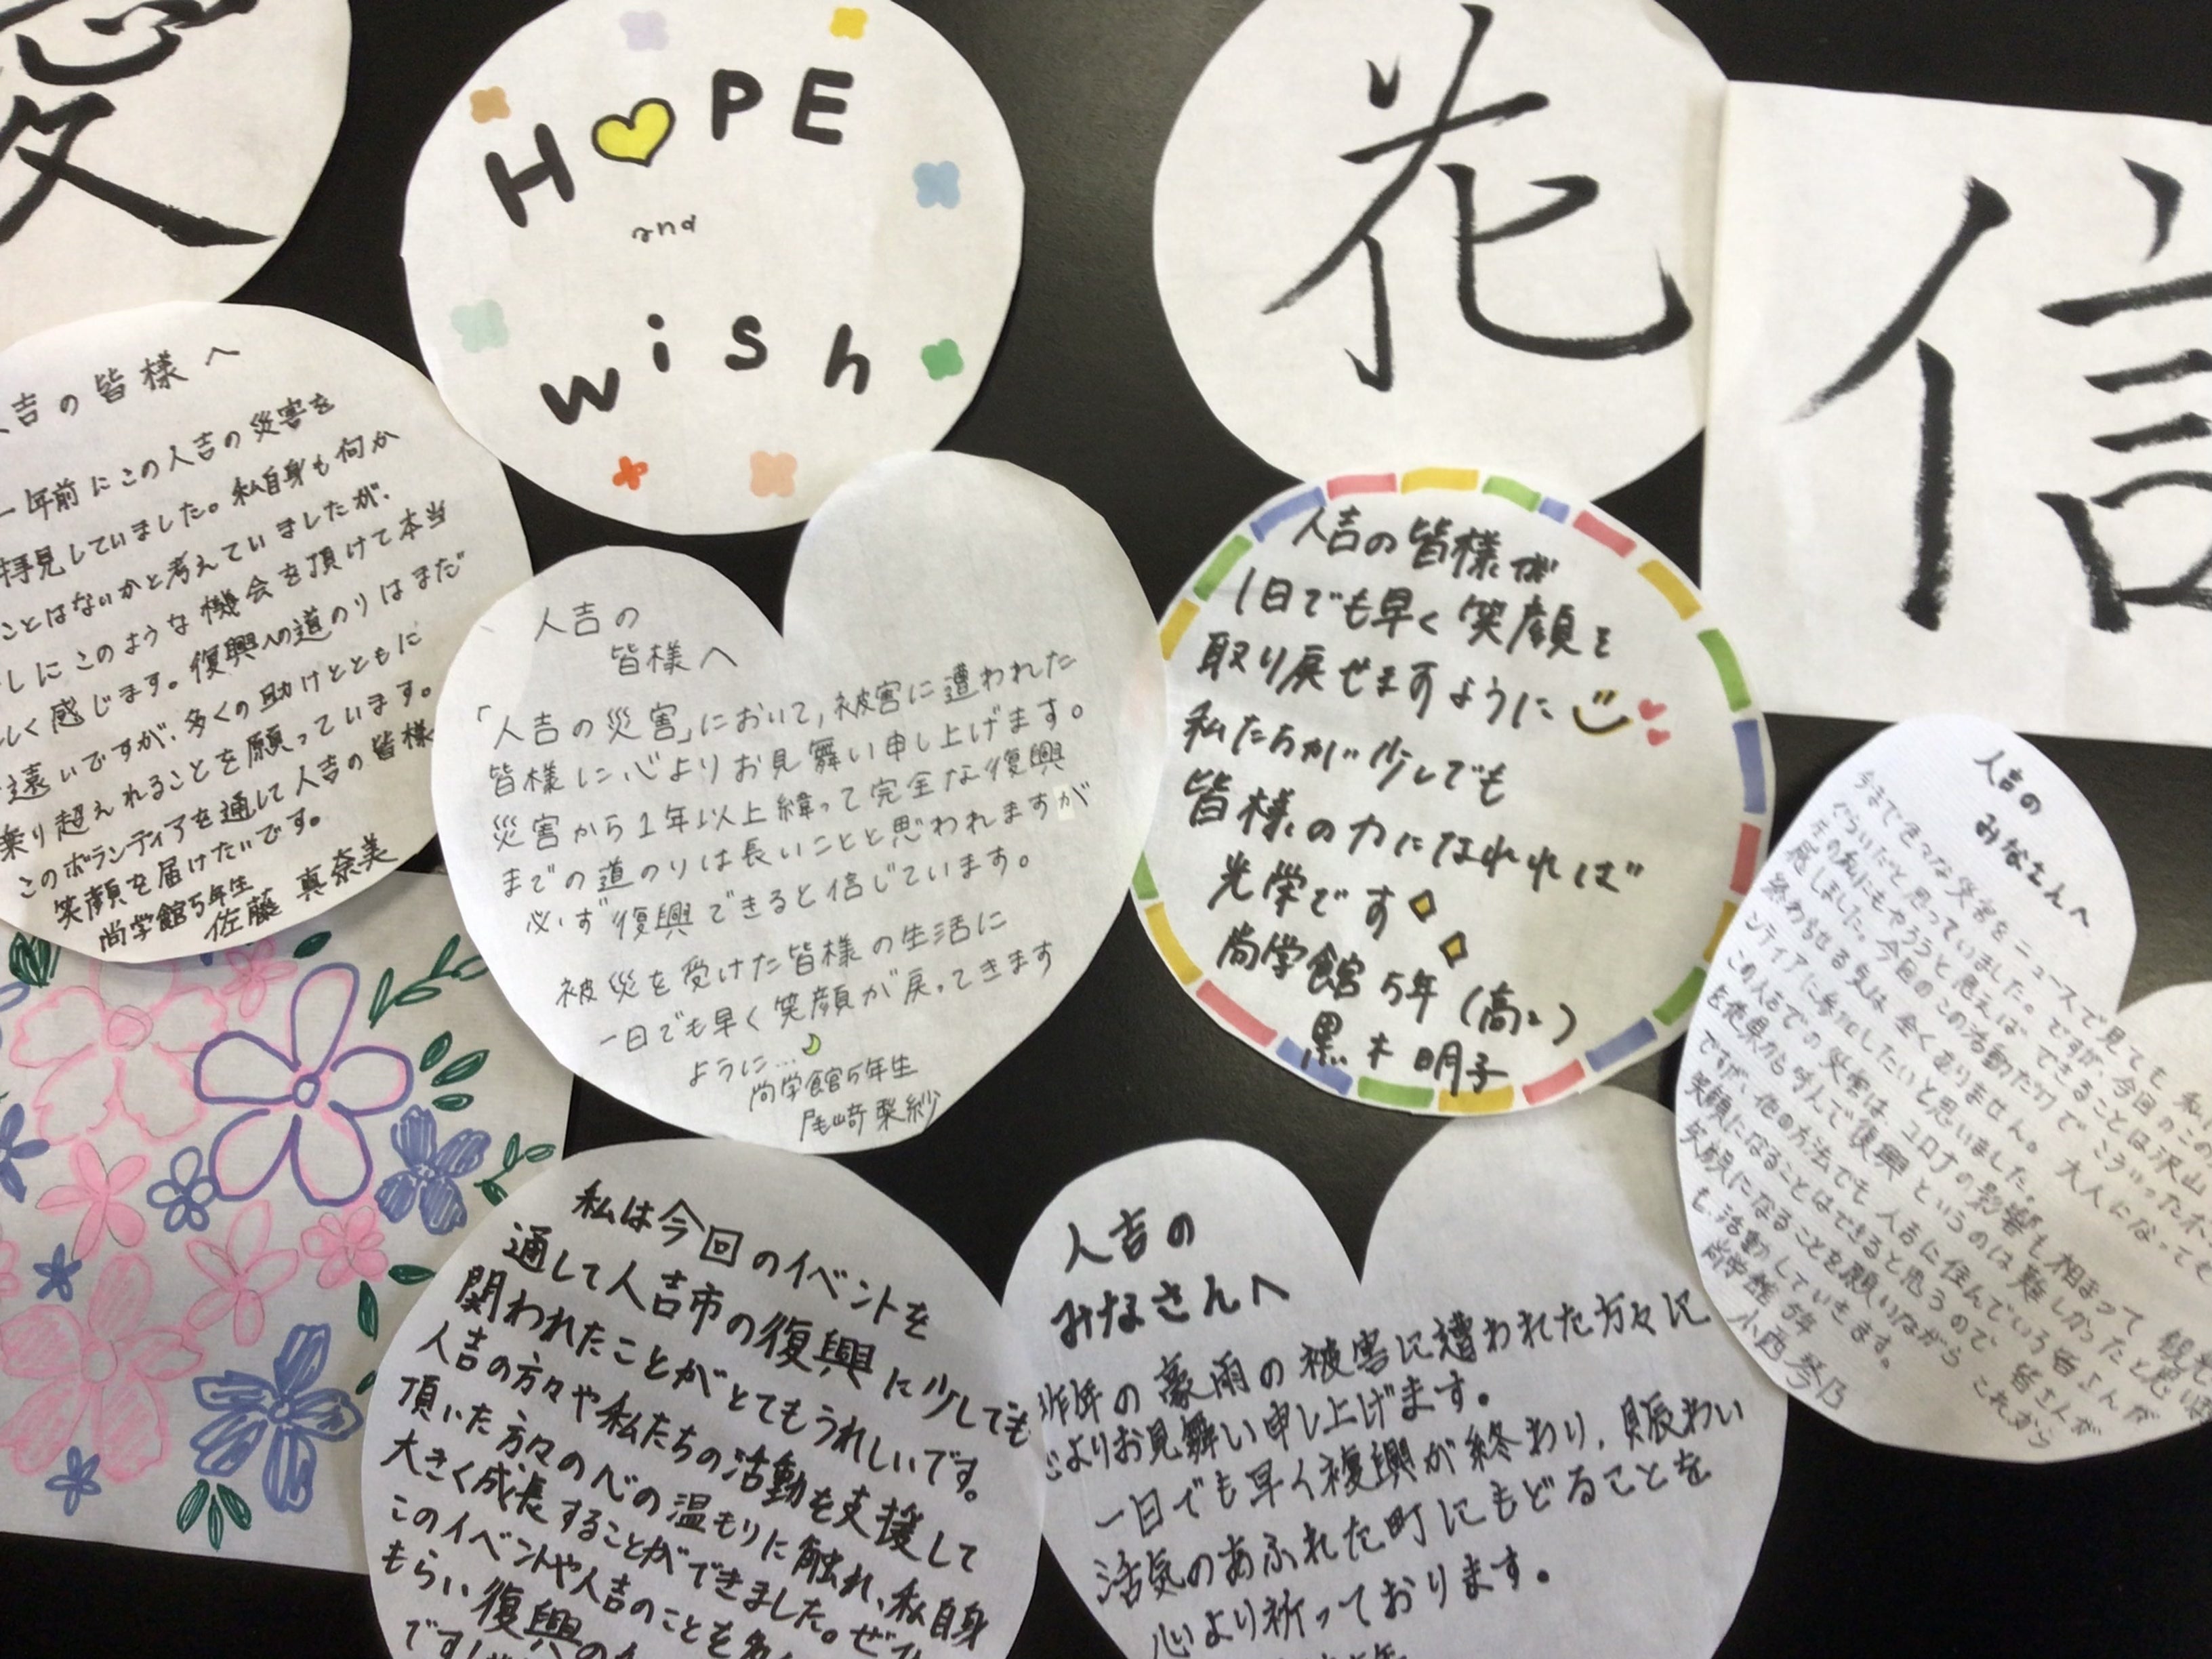 愛
HOPE
and
wish
花
信
人吉の皆様へ
一年前にこの人吉の災害を
拝見していました。私自身も何か
ことはないかと考えていましたが、
しにこのような機会を頂けて本当
しく感じます。復興への道のりはまだ
遠いですが、多くの助けとともに
乗り超えれることを願っています。
このボランティアを通して人吉の皆様
笑顔を届けたいです。
尚学館5年生
佐藤 真奈美
人吉の
皆様へ
「人吉の災害」において,被害に遭われた
皆様に心よりお見舞い申し上げます。
災害から1年以上経って完全な復興
までの道のりは長いことと思われますが
必ず復興できると信じています。
被災を受けた皆様の生活に
一日でも早く笑顔が戻ってきます
ように…
尚学館5年生
尾崎梨紗
人吉の皆様が
1日でも早く笑顔を
取り戻せますように
私たちが少しでも
皆様の力になれれば
光栄です
尚学館5年(高2)
黒木明子
人吉の
みなさんへ
今まで色々な災害をニュースで見ても 私
ぐらいだと思っていました。ですが、今回のこの
その私にもやろうと思えばできることは沢山
感しました。今回のこの活動だけで大人になっても
終わらせる気は全くありません。こういったボ
ンティアに参加したいと思いました。
この人吉での災害は、コロナの影響も相まって 観光
を他県から呼んで復興というのは難しかったと思い
ですが、他の方法でも人吉に住んでいる皆さんが
笑顔になることはできると思うので 皆さんが
笑顔になることを願いながら これから
も活動していきます。
尚学館5年
小西琴乃
私は今回のイベントを
通して人吉市の復興に少しでも
関われたことがとてもうれしいです。
人吉の方々や私たちの活動を支援して
頂いた方々の心の温もりに触れ、私自身
大きく成長することができました。ぜひ
このイベントや人吉のことを
もらい復興の
です
人吉の
みなさんへ
昨年の豪雨の被害に遭われた方々に
心よりお見舞い申し上げます。
一日でも早く複興が終わり、賑わい
活気のあふれた町にもどることを
心より祈っております。